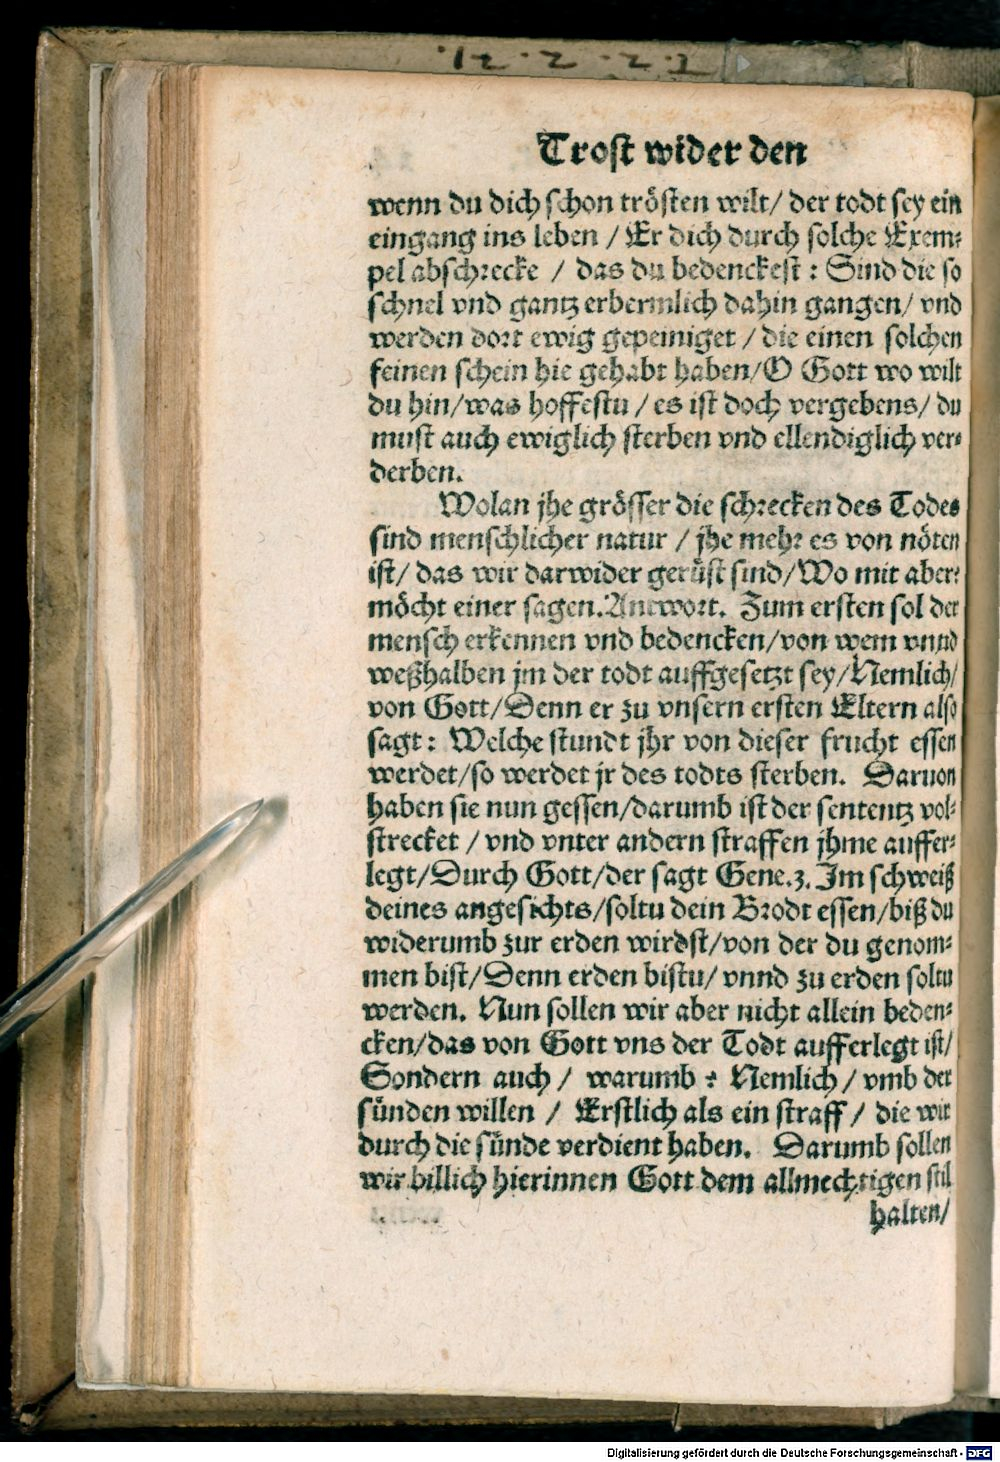 12.2.23
Trost wider den
wenn du dich schon trösten wilt/ der todt sey ein
eingang ins leben / Er dich durch solche Exem⸗
pel abschrecke / das du bedenckest: Sind die so
schnel vnd gantz erbermlich dahin gangen/ vnd
werden dort ewig gepeiniget / die einen solchen
feinen schein hie gehabt haben/O Gott wo wilt
du hin/was hoffestu / es ist doch vergebens/ du
must auch ewiglich sterben vnd ellendiglich ver⸗
derben.
Wolan jhe grösser die schrecken des Todes
sind menschlicher natur / jhe mehr es von nöten
ist/ das wir darwider gerüst sind/Wo mit aber:
möcht einer sagen. Antwort. Zum ersten sol der
mensch erkennen vnd bedencken/von wem vnnd
weßhalben jm der todt auffgesetzt sey/Nemlich/
von Gott/Denn er zu vnsern ersten Eltern also
sagt: Welche stundt jhr von dieser frucht essen
werdet/so werdet jr des todts sterben. Daruon
haben sie nun gessen/darumb ist der sententz vol⸗
strecket / vnd vnter andern straffen jhme auffer⸗
legt/Durch Gott/der sagt Gene.3. Im schweiß
deines angesichts/soltu dein Brodt essen/biß du
widerumb zur erden wirdst/von der du genom⸗
men bist/Denn erden bistu/ vnnd zu erden soltu
werden. Nun sollen wir aber nicht allein beden⸗
cken/das von Gott vns der Todt aufferlegt ist/
Sondern auch / warumb ? Nemlich / vmb der
sünden willen / Erstlich als ein straff / die wir
durch die sünde verdient haben. Darumb sollen
wir billich hierinnen Gott dem allmechtigen stil
halten/
Digitalisierung gefördert durch die Deutsche Forschungsgemeinschaft - DFG